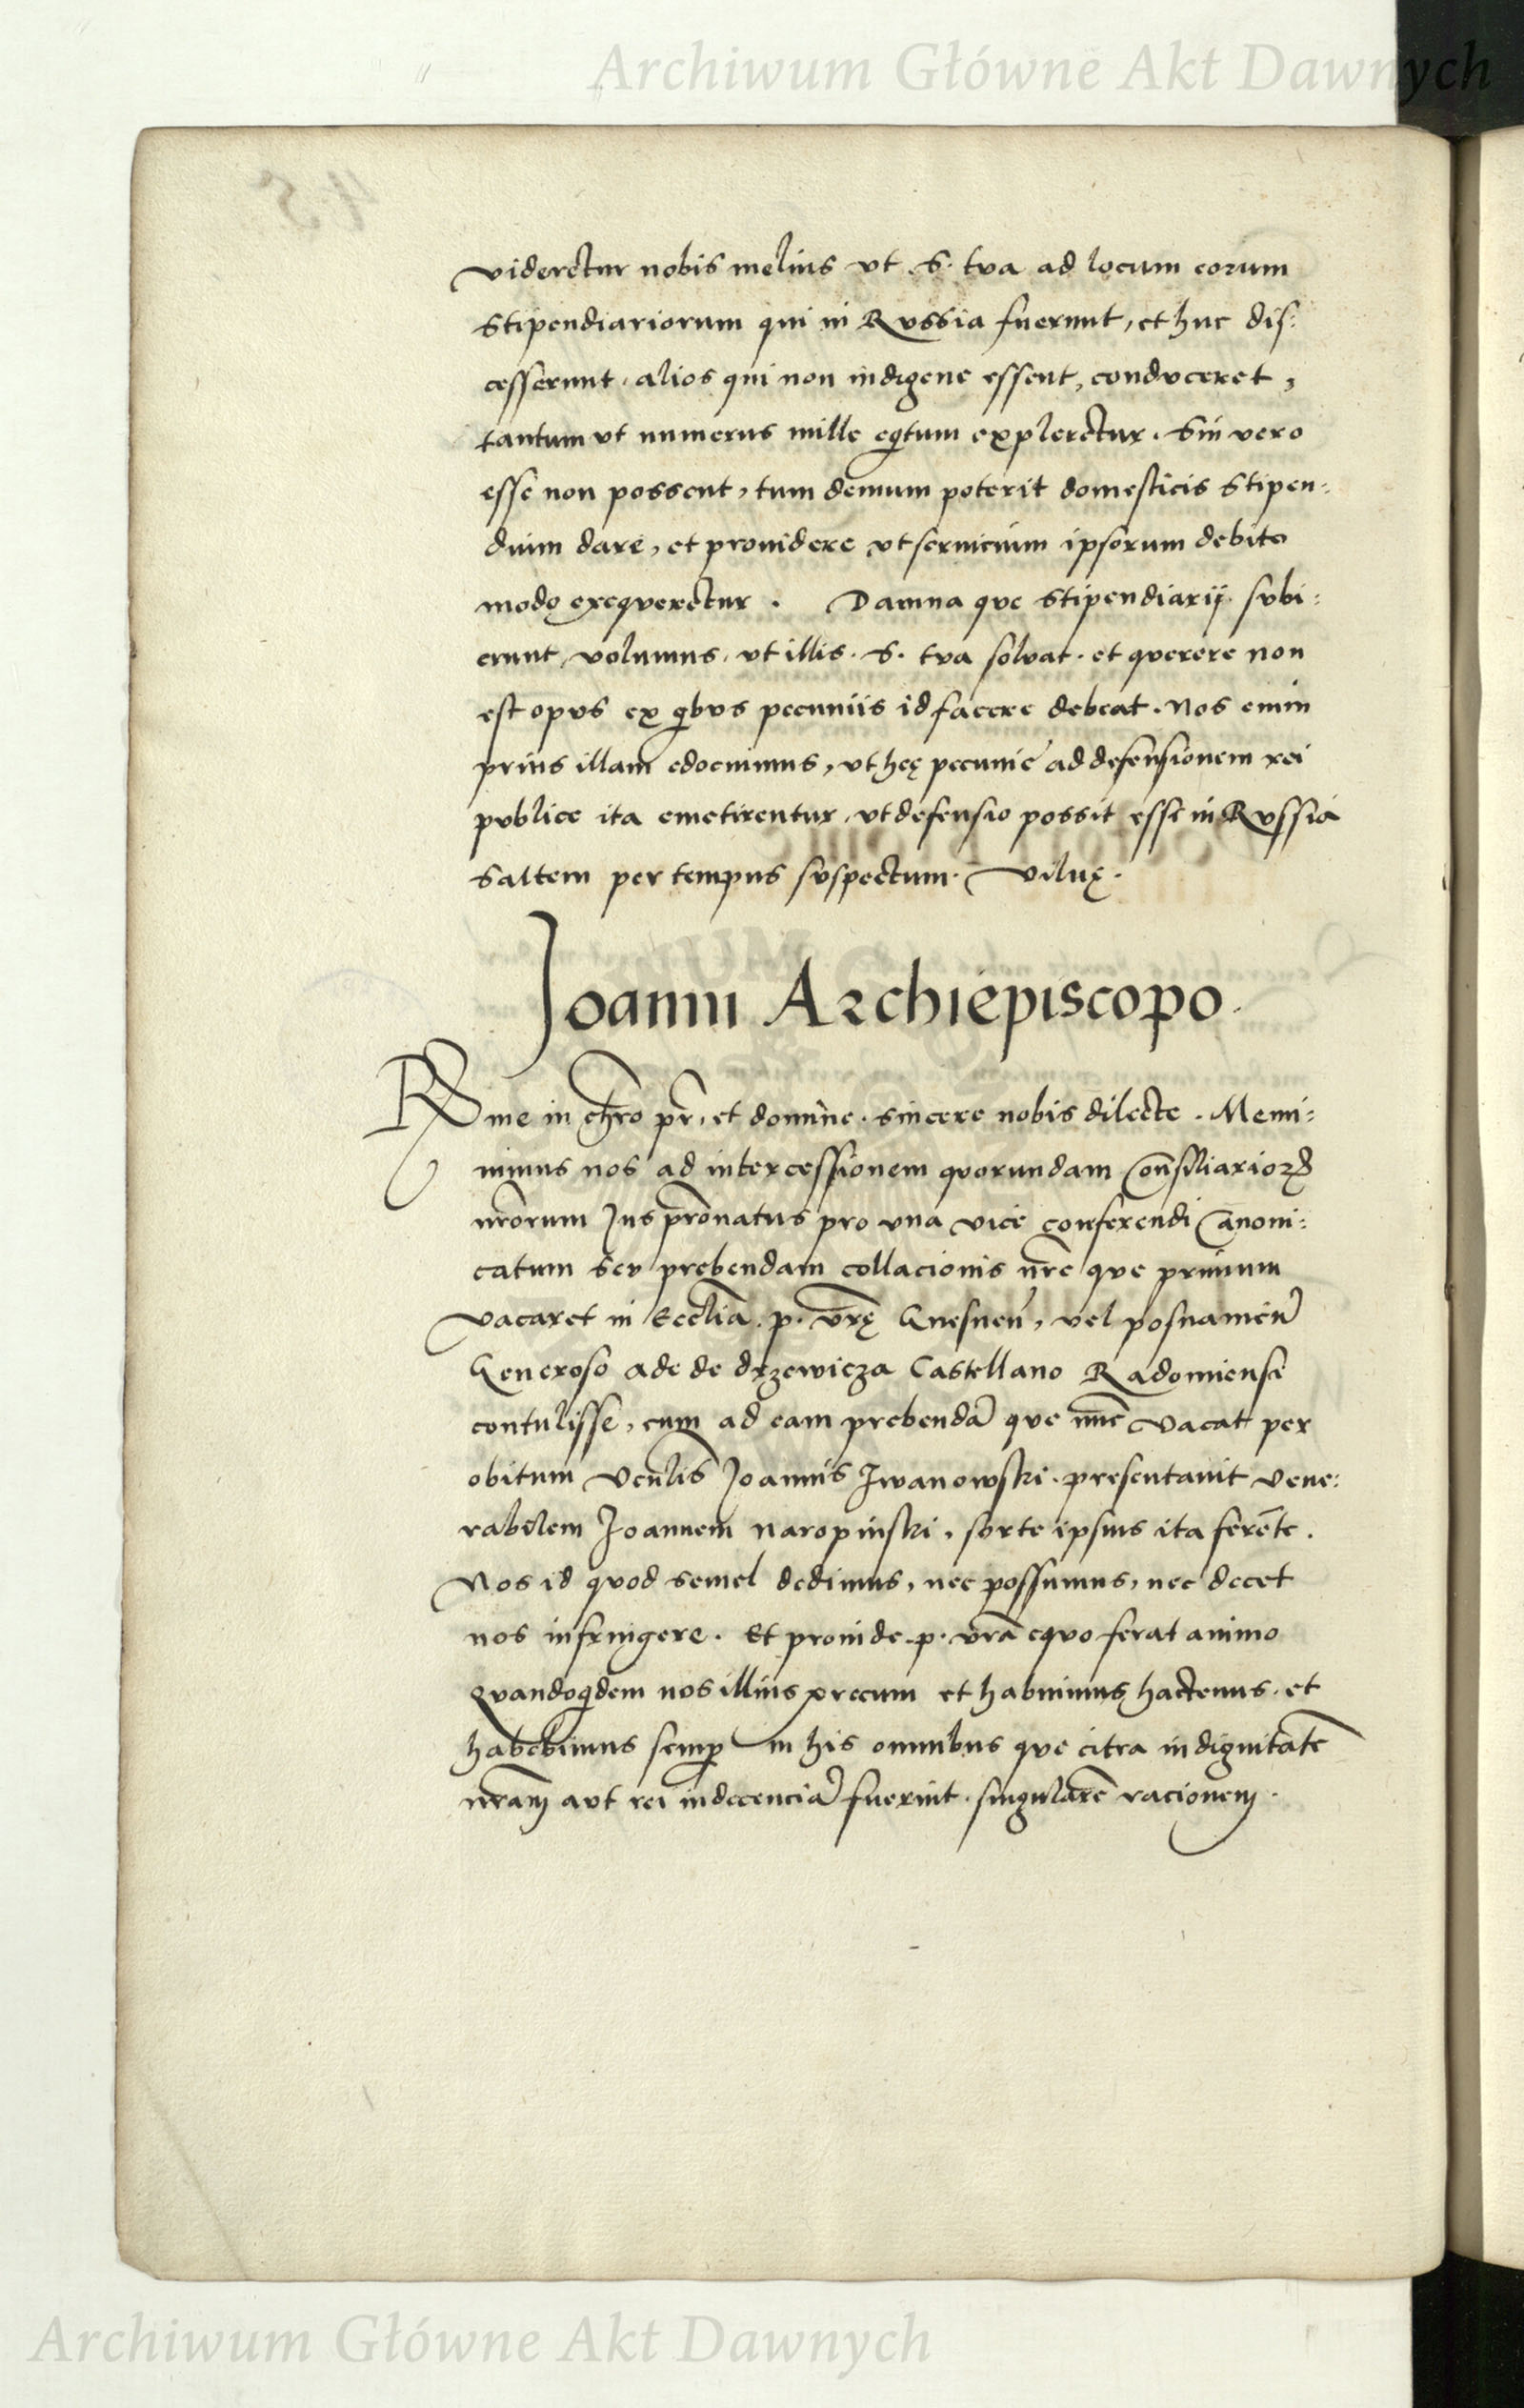 Archiwum Główne Akt Dawnych
videretur nobis melius vt .S. tva ad locum eorum
Stipendiariorum qui in Rvssia fuerunt, et huc dis:
cesserunt, alios qui non indigene essent, condvceret,
tantum vt numerus mille eqtum expleretur. Sin vero
esse non possent, tum demum poterit domesticis Stipen:
dium dare, et prouidere vt seruicium ipsorum debito
modo exequeretur . Damna qve Stipendiarij svbi:
erunt, volumus, vt illis .S. tva solvat. et qverere non
est opvs ex qbvs pecuniis id facere debeat. Nos enim
prius illam edocuimus, vt heę pecunie ad defensionem rei
pvblice ita emetirentur, vt defensio possit esse in Rvssia
saltem per tempus svspectum. Vilnę.
Joanni Archiepiscopo.
Rme in chro pr, et domine. sincere nobis dilecte. Memi:
nimus nos ad intercessionem qvorundam Consiliarioꝝ
nrorum Jus pronatus pro vna vice conferendi Canoni:
catum sev prebendam collacionis nre qve primum
vacaret in Ecclia .p. vrę Gnesnen, vel posnanien
Generoso ade de drzewicza Castellano Radomiensi
contulisse, cum ad eam prebenda qve nuc vacat per
obitum Venlis Joannis Iwanowski. presentauit vene:
rabilem Joannem naropinski, sorte ipsius ita ferete.
Nos id quod semel dedimus, nec possumus, nec decet
nos infringere. Et proinde .p. vra eqvo ferat animo
qvandoqdem nos illius precum et habuimus hactenus. et
habebimus semp in his omnibus qve citra indignitate
nram avt rei indecencia fuerint. singulare racionem.
Archiwum Główne Akt Dawnych